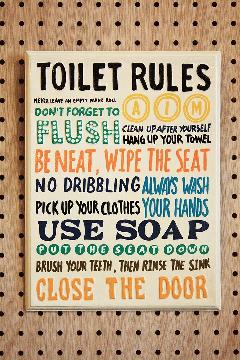 TOILET RULES
NEVER LEAVE AN EMPTY PAPER ROLL
DON'T FORGET TO
FLUSH
AIM
CLEAN UP AFTER YOURSELF
HANG UP YOUR TOWEL
BE NEAT, WIPE THE SEAT
NO DRIBBLING ALWAYS WASH
PICK UP YOUR CLOTHES YOUR HANDS
USE SOAP
PUT THE SEAT DOWN
BRUSH YOUR TEETH, THEN RINSE THE SINK
CLOSE THE DOOR